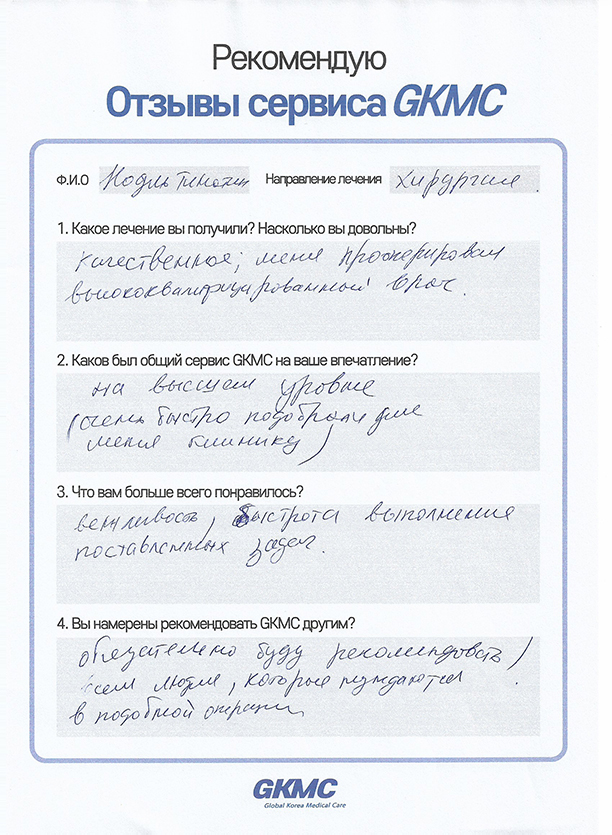 Рекомендую
Отзывы сервиса GKMC
Ф.И.О Направление лечения хирургия.
1. Какое лечение вы получили? Насколько вы довольны?
качественное; меня прооперировал
высококвалифицированный врач.
2. Каков был общий сервис GKMC на ваше впечатление?
на высшем уровне
(очень быстро подобрали для
меня клинику)
3. Что вам больше всего понравилось?
вежливость, быстрота выполнения
поставленных задач.
4. Вы намерены рекомендовать GKMC другим?
обязательно буду рекомендовать
всем людям, которые нуждаются
в подобной операции
GKMC
Global Korea Medical Care